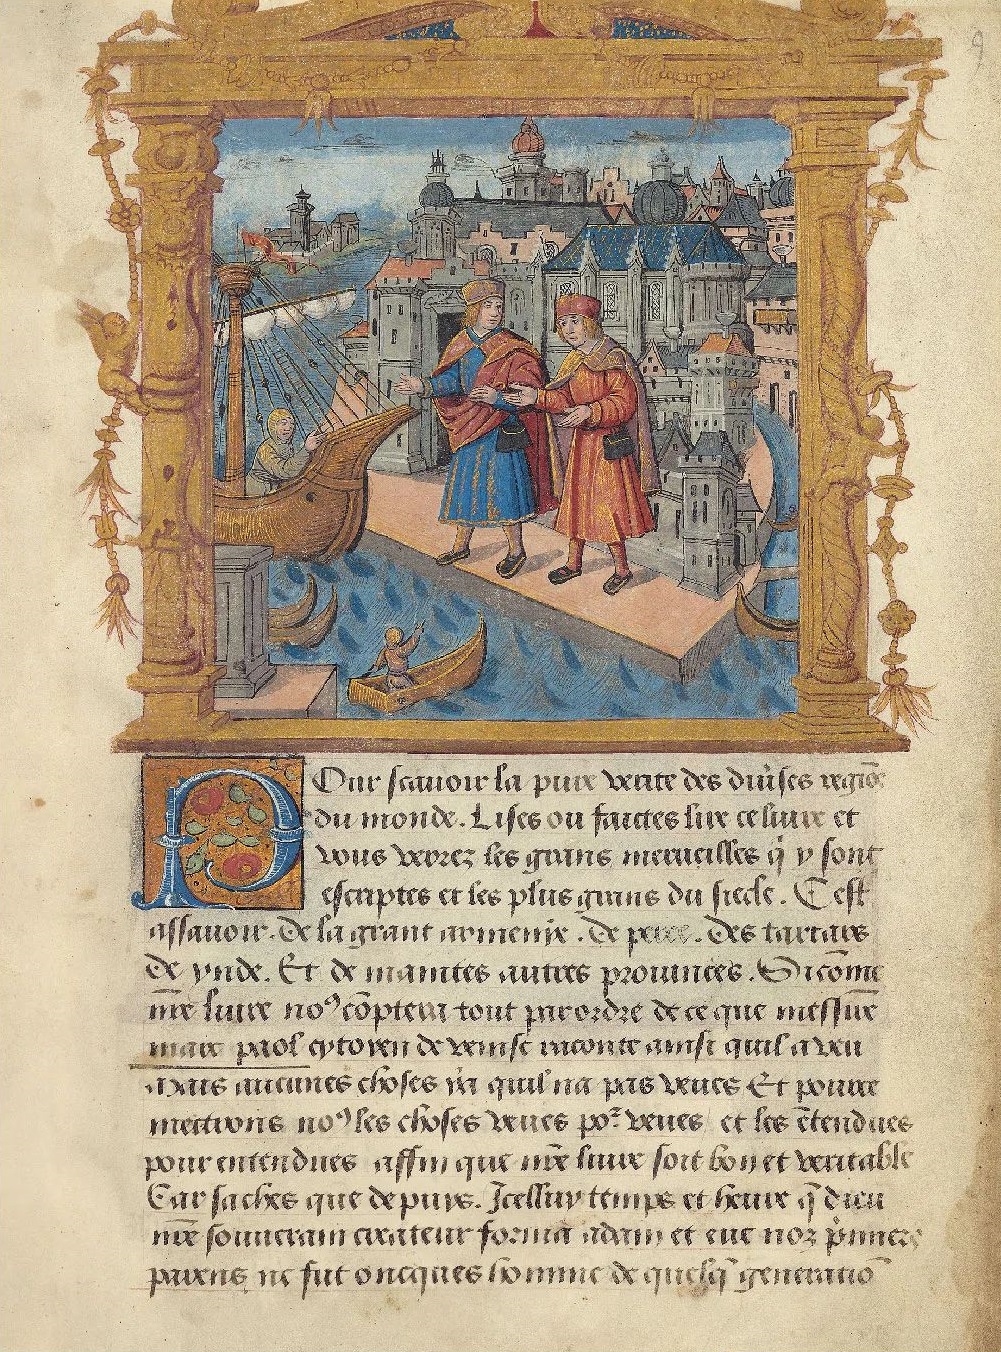 9
Pour scauoir la pure verite des diuises regiōs
du monde. Lises ou faictes lire ce liure et
vous verrez les grans merueilles q̄ y sont
escriptes et les plus grans du siecle. Cest
assauoir. De la grant armenie. De perce. Des tartars
De ynde. Et de maintes autres prouinces. Si cōme
nr̄e liure noꝰ cōptera tout par ordre de ce que messire
marc paol cytoyen de venise raconte ainsi quil a veu
Mais aucunes choses ya quil na pas veues Et pource
mectrons noꝰ les choses veues poꝛ veues et les ētendues
pour entendues affin que nr̄e liure soit bon et veritable
Car saches que depuys. Icelluy temps et heure q̄ dieu
nr̄e souuerain createur forma adam et eue noz p̄miers
parens ne fut oncques homme de quelq̄ generatiō